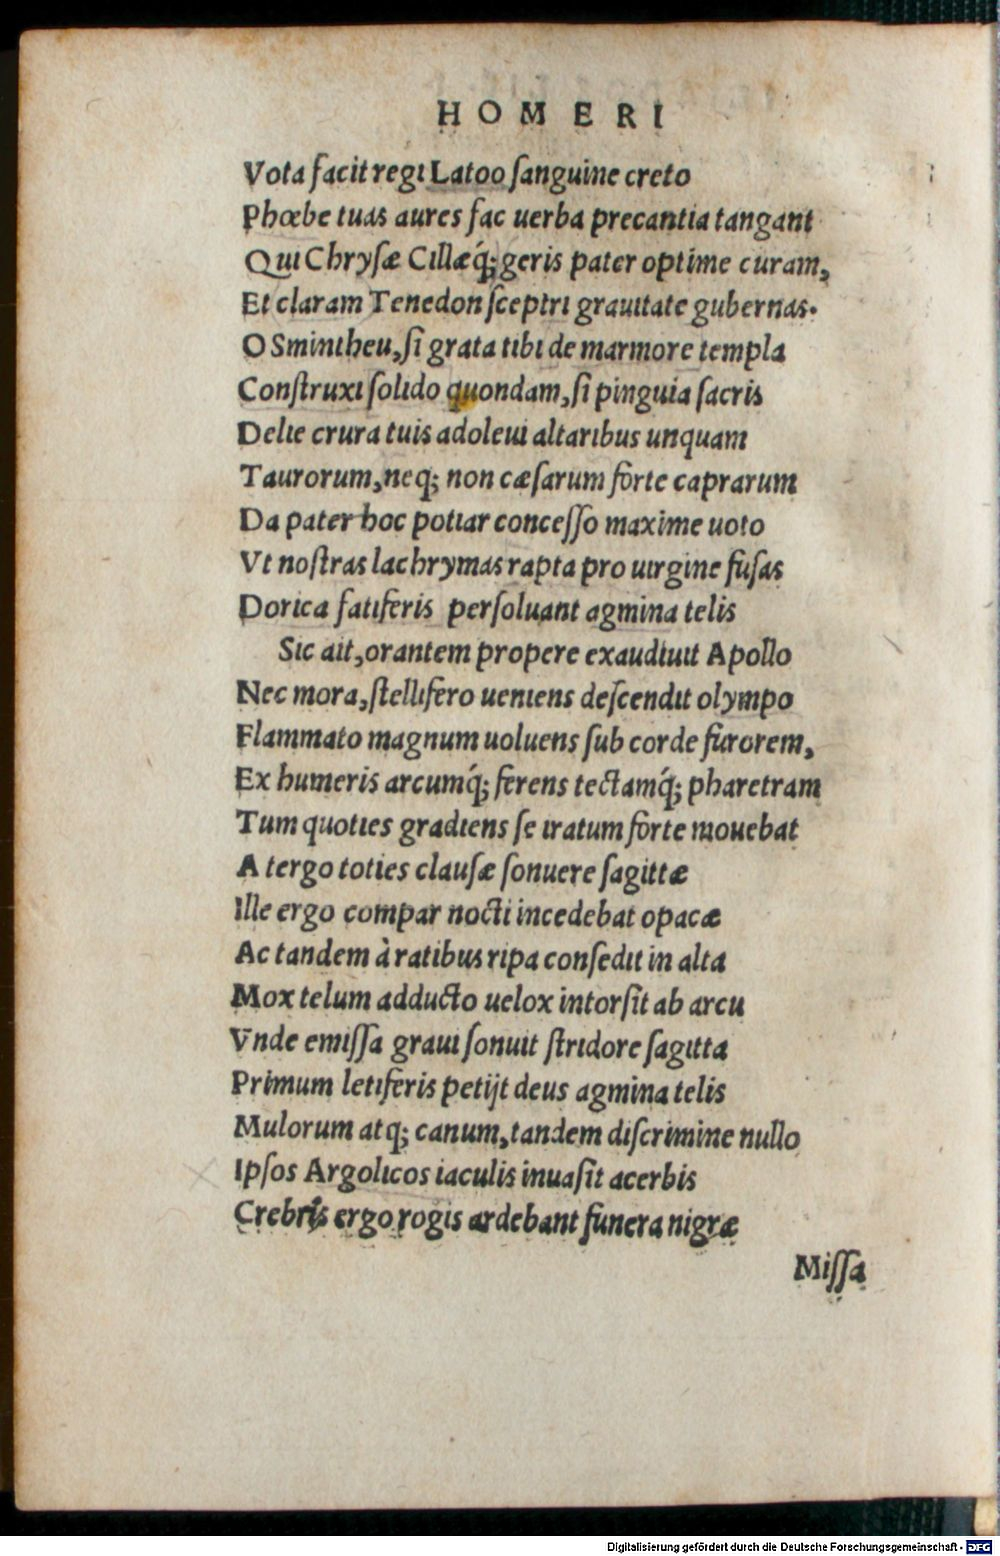 HOMERI
Vota facit regi Latoo ſanguine creto
Phœbe tuas aures fac uerba precantia tangant
Qui Chryſæ Cillæq́; geris pater optime curam,
Et claram Tenedon ſceptri grauitate gubernas.
O Smintheu, ſi grata tibi de marmore templa
Conſtruxi ſolido quondam, ſi pinguia ſacris
Delie crura tuis adoleui altaribus unquam
Taurorum, neq; non cæſarum forte caprarum
Da pater hoc potiar conceſſo maxime uoto
Vt noſtras lachrymas rapta pro uirgine fuſas
Dorica fatiferis perſoluant agmina telis
Sic ait, orantem propere exaudiuit Apollo
Nec mora, ſtellifero ueniens deſcendit olympo
Flammato magnum uoluens ſub corde furorem,
Ex humeris arcumq́; ferens tectamq́; pharetram
Tum quoties gradiens ſe iratum forte mouebat
A tergo toties clauſæ ſonuere ſagittæ
Ille ergo compar nocti incedebat opacæ
Ac tandem à ratibus ripa conſedit in alta
Mox telum adducto uelox intorſit ab arcu
Vnde emiſſa graui ſonuit ſtridore ſagitta
Primum letiferis petijt deus agmina telis
Mulorum atq; canum, tandem diſcrimine nullo
Ipſos Argolicos iaculis inuaſit acerbis
Crebris ergo rogis ardebant funera nigræ
Miſſa
Digitalisierung gefördert durch die Deutsche Forschungsgemeinschaft - DFG